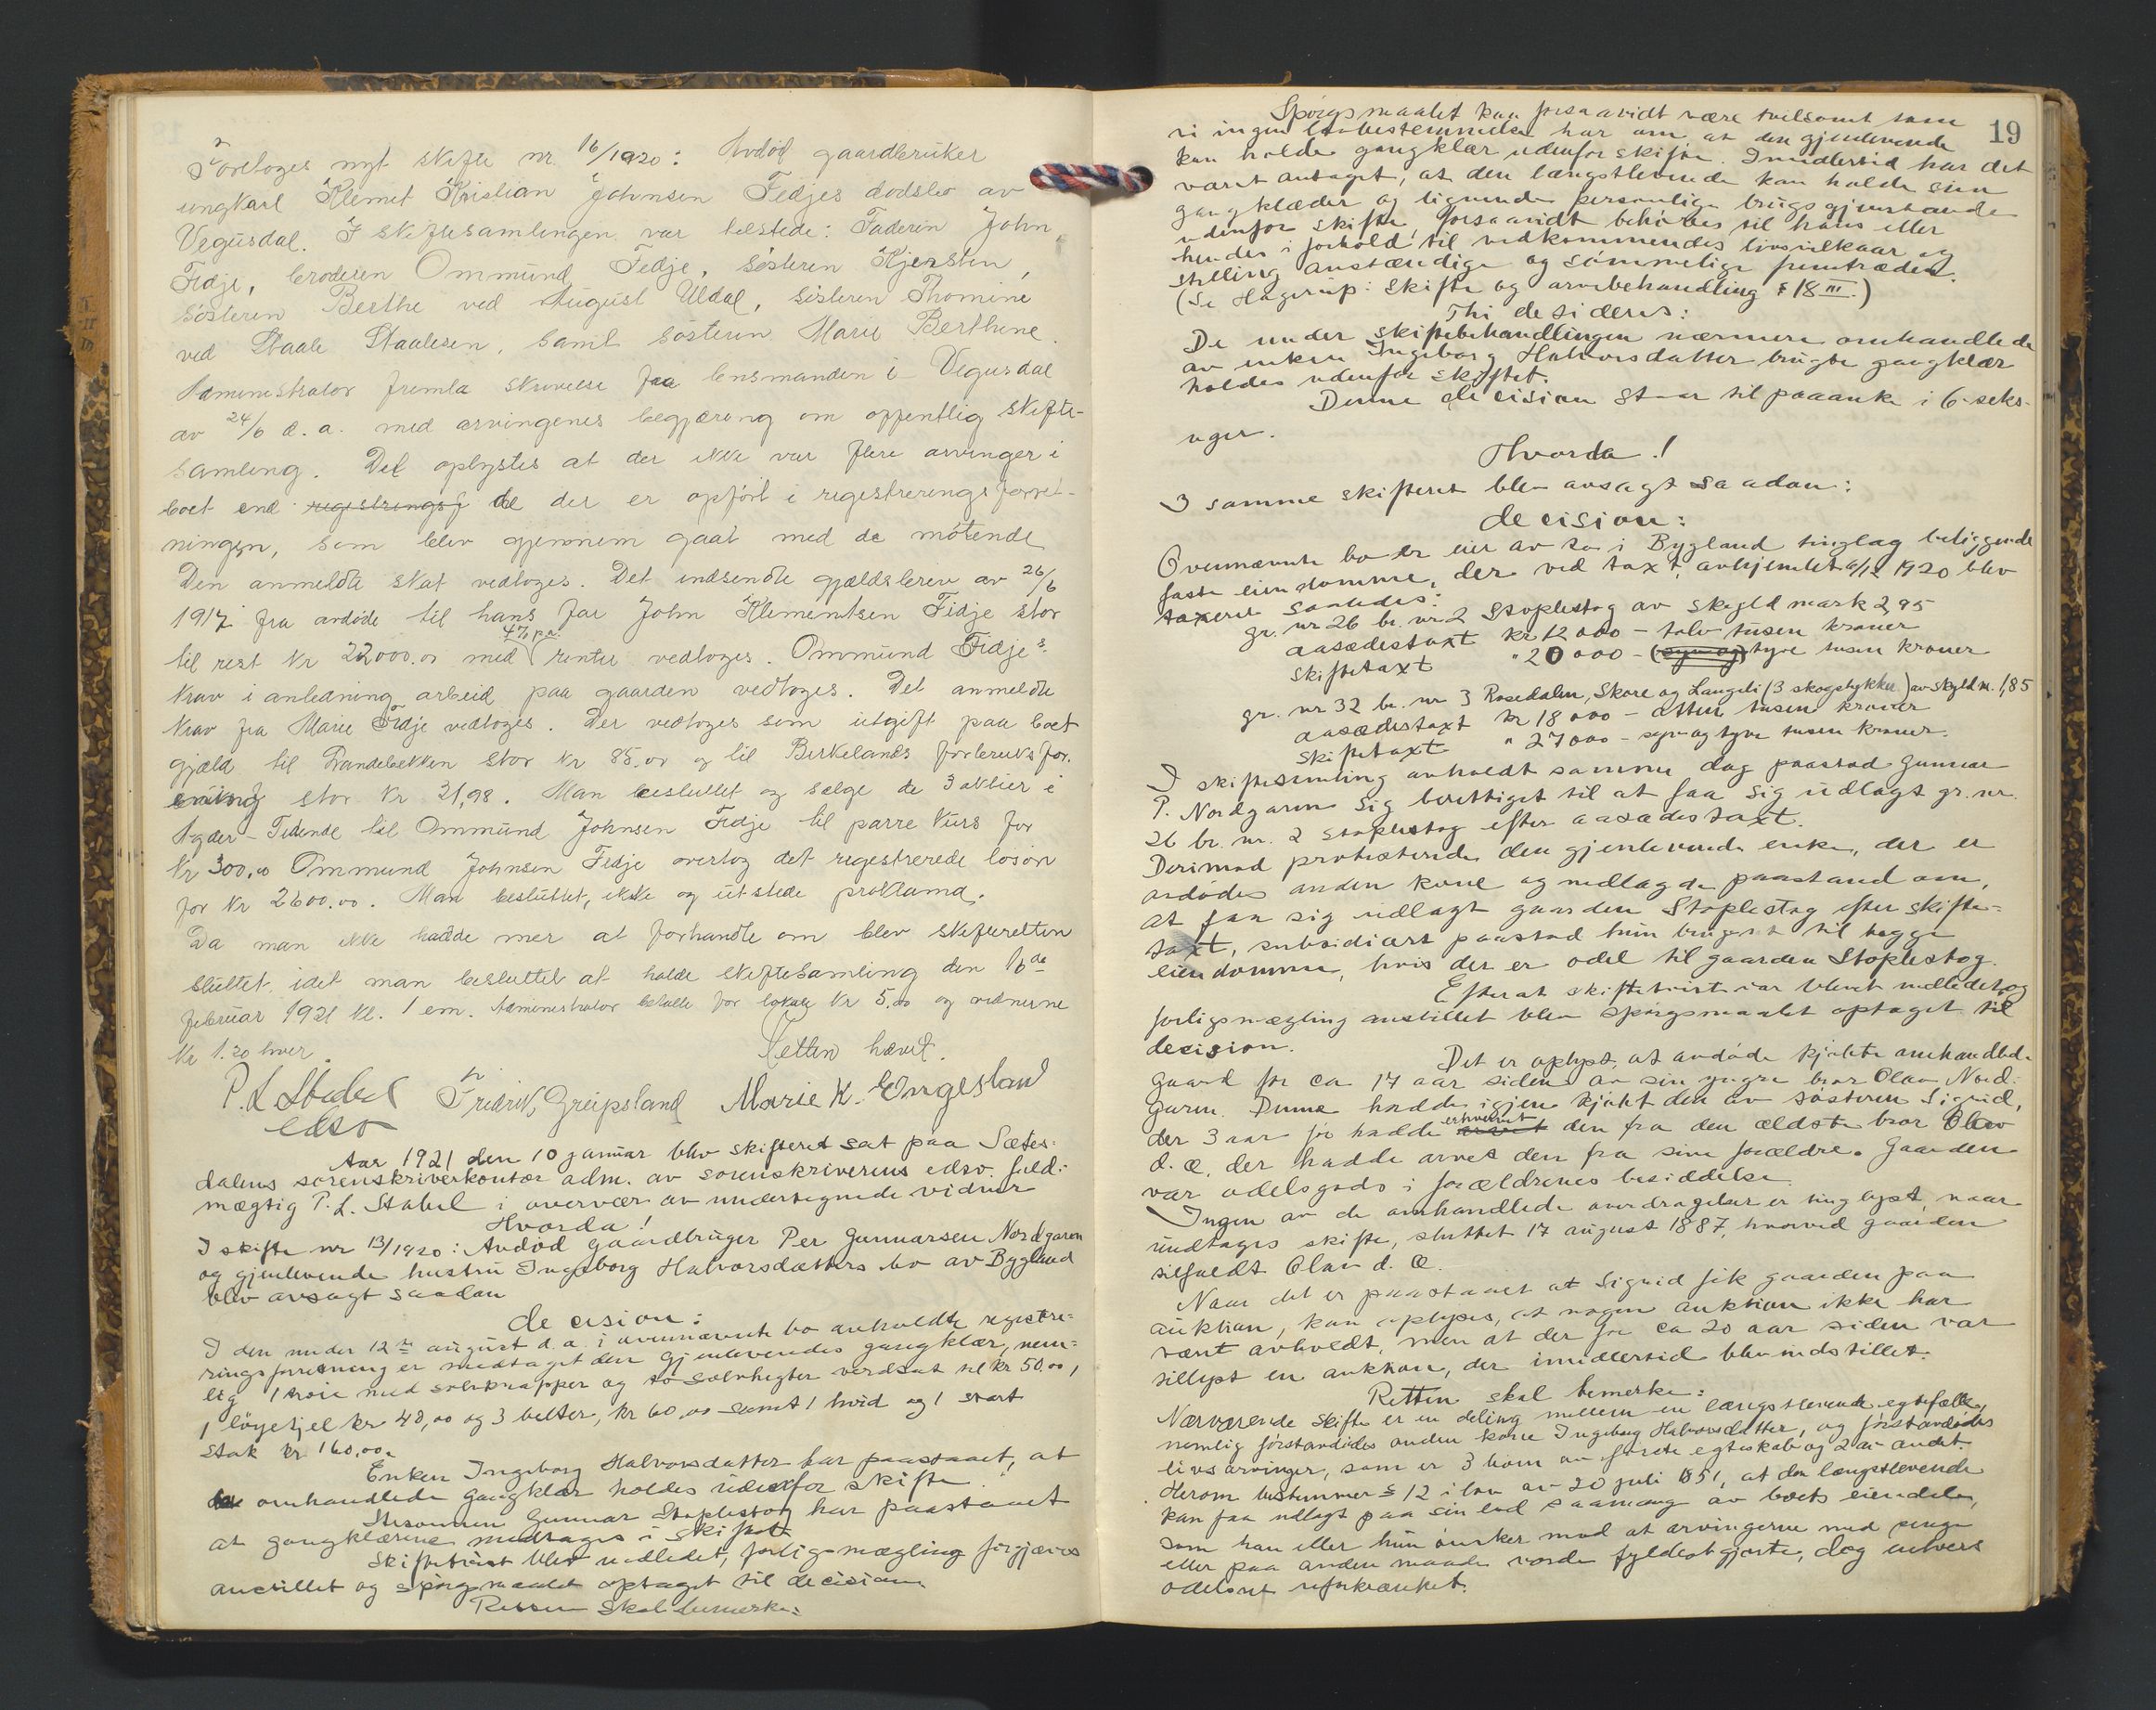 Foretoges nyt skifte nr. 16/1920: Avdød gaardbruker
ungkarl Klemet Kristian Johnsen Fidjes dødsbo av
Vegusdal. I skiftesamlingen var tilstede: Faderen John
Fidje, broderen Ommund Fidje, søsteren Kjersten,
søsteren Berthe ved August Uldal, søsteren Thomine
ved Staale Staalesen, samt søsteren Marie Berthine.
Administrator fremla skrivelse fra lensmanden i Vegusdal
av 24/6 d. a. med arvingenes begjæring om offentlig skifte-
samling. Det oplystes at der ikke var flere arvinger i
boet end registrings de der er opført i registreringsforret-
ningen, som blev gjennem gaat med de møtende
Den anmeldte skat vedtoges. Det indsendte gjældsbrev av 26/6
1917 fra avdøde til hans far John Klementsen Fidje stor
til rest kr 22000.00 med 4% p.a. renter vedtoges. Ommund Fidjes
krav i anledning arbeid paa gaarden vedtoges. Det anmeldte
krav fra Marie Fidje vedtoges. Der vedtoges som utgift paa boet
gjæld til Landebekken stor kr 85.00 og til Birkelands forbruksfor.
ening stor kr 21,98. Man besluttet og sælge de 3 aktier i
Agder-Tidende til Ommund Johnsen Fidje til parre kurs for
kr 300.00 Ommund Johnsen Fidje overtog det registrerede løsøre
for kr 2600.00. Man besluttet, ikke og utstede proklama.
Da man ikke hadde mer at forhandle om blev skifteretten
sluttet, idet man besluttet at holde skiftesamling den 16de
februar 1921 kl. 1 em. Administrator betalte for lokale kr 5.00 og vidnerne
kr 1.20 hver.
Retten hævet.
P. L. Stabel Fridrik Greipsland Marie K. Engesland
edsv
Aar 1921 den 10 januar blev skifteret sat paa Sætes-
dalens sorenskriverkontor adm. av sorenskriverens edsv. fuld-
mægtig P. L. Stabel i overvær av undertegnede vidner
Hvorda!
I skifte nr 13/1920: Avdød gaardbruger Per Gunnarsen Nordgaren
og gjenlevende hustru Ingeborg Halvorsdatters bo av Bygland
blev avsagt saadan
decision:
I den under 12te august d. a. i ovennævnte bo avholdte registre-
ringsforretning er medtaget den gjenlevendes gangklær, nem-
lig 1 trøie med sølvknapper og to sølvhegter verdsat til kr 50.00,
1 løyetjel kr 48,00 og 3 belter, kr 60,00 samt 1 hvid og 1 svart
stak kr 160,00.
Enken Ingeborg Halvorsdatter har paastaaet, at
de omhandlede gangklær holdes udenfor skifte
Stesønnen Gunnar Stoplestog har paastaaet
at gangklærene medtages i skiftet
Skiftetvist blev indledet, forligsmægling forgjæves
anstillet og spørgsmaalet optaget til decision.
Retten skal bemerke:
19
Spørgsmaalet kan forsaavidt være tvilsomt som
vi ingen lovbestemmelse har om at den gjenlevende
kan holde gangklær udenfor skifte. Imidlertid har det
været antaget, at den længstlevende kan holde sine
gangklæder og lignende personlige brugsgjenstande
udenfor skifte, forsaavidt behøves til hans eller
hendes i forhold til vedkommendes livsvilkaar og
stilling anstændige og sømmelige fremtræden.
(Se Hagerup: Skifte og arvebehandling § 18 III.)
Thi desideres:
De under skiftebehandlingen nærmere omhandlede
av enken Ingeborg Halvorsdatter brugte gangklær
holdes udenfor skiftet.
Denne decision staar til paaanke i 6-seks-
uger.
Hvorda!
I samme skifteret blev avsagt saadan:
decision:
Ovennævnte bo er eier av to i Bygland tinglag beliggende
faste eiendomme, der ved taxt, avhjemlet 1920 blev
taxeret saaledes:
gr. nr 26 br. nr 2 Stoplestog av skyld mark 2,95
aasædestaxt kr 12000 - tolv tusen kroner
skiftetaxt " 20000 - (syv og) tyve tusen kroner
gr. nr 32 br. nr 3 Rosedalen, Skore og Langeli (3 skogstykker) av skyld m. 1,85
aasædestaxt kr 18000 - atten tusen kroner
skiftetaxt " 27000 - syv og tyve tusen kroner.
I skiftesamling avholdt samme dag paastod Gunnar
P. Nordgaren sig berettiget til at faa sig udlagt gr. nr.
26 br. nr. 2 Stoplestog efter aasædestaxt.
Derimod protesterede den gjenlevende enke, der er
avdødes anden kone og nedlagde paastand om,
at faa sig udlagt gaarden Stoplestog efter skifte-
taxt, subsidiært paastod hun bruksret til begge
eiendomme, hvis der er odel til gaarden Stoplestog.
Efterat skiftetvist var blevet indledet og
forligsmægling anstillet blev spørgsmaalet optaget til
decision.
Det er oplyst, at avdøde kjøbte omhandlede
gaard for ca 17 aar siden av sin yngre bror Olav Nord-
garen. Denne hadde igjen kjøbt den av søsteren Sigrid,
der 3 aar før hadde erhvervet arvet den fra den ældste bror Olav
d. æ. der hadde arvet den fra sine forældre. Gaarden
var odelsgods i forældrenes besiddelse.
Ingen av de omhandlede overdragelser er tinglyst, naar
undtages skifte, sluttet 17 august 1887, hvorved gaarden
tilfaldt Olav d. Æ.
Naar det er paastaaet at Sigrid fik gaarden paa
auktion, kan oplyses, at nogen auktion ikke har
været avholdt, men at der for ca 20 aar siden var
tillyst en auktion, der imidlertid blev indstillet.
Retten skal bemerke:
Nærværende skifte er en deling mellem en længstlevende egtefælle,
nemlig førstavdødes anden kone Ingeborg Halvorsdatter, og førstavdødes
livsarvinger, som er 3 barn av første egteskab og 2 av andet.
Herom bestemmer § 12 i lov av 20 juli 1851, at den længstlevende
kan faa udlagt paa sin lod saamang av boets eiendele,
som han eller hun ønsker mod at arvingerne med penge
eller paa anden maade vorde fyldestgjorte, dog enhvers
odelsret uforkrænket.